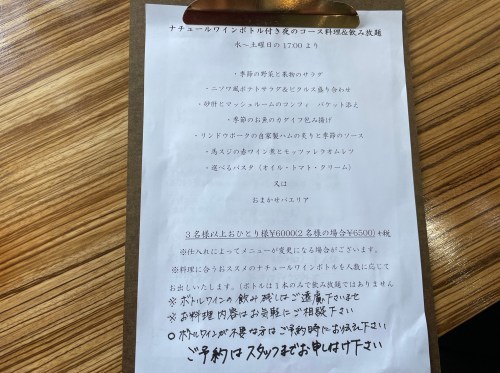 ナチュールワインボトル付き夜のコース料理&飲み放題
水〜土曜日の17:00より
・季節の野菜と果物のサラダ
・ニソワ風ポテトサラダ&ピクルス盛り合わせ
・砂肝とマッシュルームのコンフィ バケット添え
・季節のお魚のカダイフ包み揚げ
・リンドウポークの自家製ハムの炙りと季節のソース
・馬スジの赤ワイン煮とモッツァレラオムレツ
・選べるパスタ(オイル・トマト・クリーム)
又は
おまかせパエリア
3名様以上おひとり様¥6000(2名様の場合¥6500)+税
※仕入れによってメニューが変更になる場合がございます。
※料理に合うおススメのナチュールワインボトルを人数に応じて
お出しいたします。(ボトルは1本のみで飲み放題ではありません
※ボトルワインの飲み残しはご遠慮下さいませ
※お料理内容はお気軽にご相談下さい
○ボトルワインが不要な方はご予約時にお伝え下さい
ご予約はスタッフまでお申し付け下さい